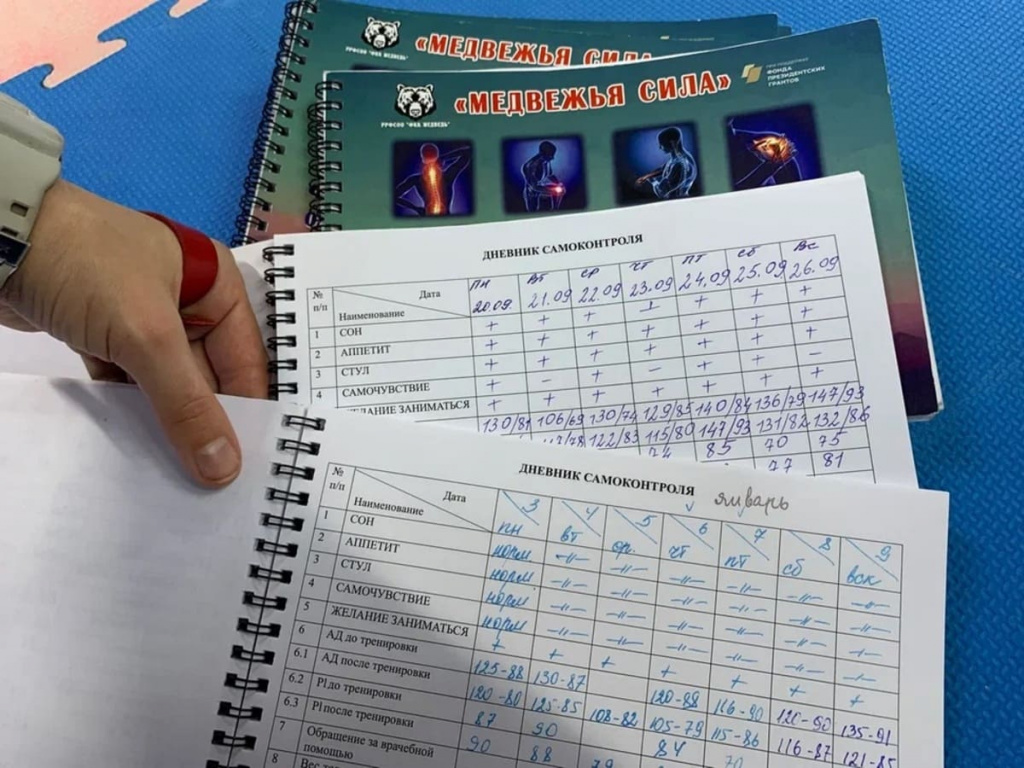 «МЕДВЕЖЬЯ СИЛА»
РРФСОО "ФКБ МЕДВЕДЬ"
«МЕДВЕЖЬЯ СИЛА»
ФОНДА
ПРЕЗИДЕНТСКИХ
ГРАНТОВ
РРФСОО "ФКБ МЕДВЕДЬ"
ДНЕВНИК САМОКОНТРОЛЯ
№ п/п Дата Наименование ПН 20.09 ВТ 21.09 СР 22.09 ЧТ 23.09 ПТ 24.09 СБ 25.09 ВС 26.09
1 СОН + + + + + + +
2 АППЕТИТ + + + + + + +
3 СТУЛ + + + + + + –
4 САМОЧУВСТВИЕ + – + – + + +
ЖЕЛАНИЕ ЗАНИМАТЬСЯ + + + + + + +
130/81 106/69 130/74 129/85 140/84 136/79 147/93
122/83 115/80 147/93 131/82 132/86
74 85 70 75
77 81
ДНЕВНИК САМОКОНТРОЛЯ январь
№ п/п Дата Наименование 3 пн 4 вт 5 ср. 6 чт 7 пт 8 сб 9 вск
1 СОН норм -//- -//- -//- -//- -//- -//-
2 АППЕТИТ норм -//- -//- -//- -//- -//- -//-
3 СТУЛ норм -//- -//- -//- -//- -//- -//-
4 САМОЧУВСТВИЕ норм -//- -//- -//- -//- -//- -//-
5 ЖЕЛАНИЕ ЗАНИМАТЬСЯ + + + + + + +
6 АД до тренировки 125-88 130-87 120-88 116-90 120-90 135-91
6.1 АД после тренировки 120-80 125-85 108-82 105-79 115-86 116-87 121-85
6.2 Pl до тренировки 87 90 84 70
6.3 Pl после тренировки 90 88 79
7 Обращение за врачебной
помощью
8